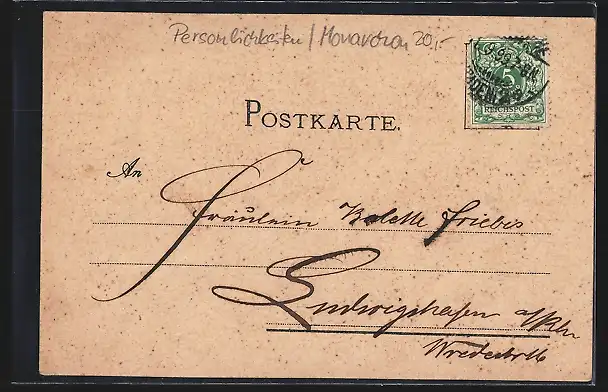 Persönlichkeiten / Monarchen 20,-
5
REICHSPOST
POSTKARTE.
An
Fräulein Babette Friebis
Ludwigshafen a/Rh.
Wredestr. 6